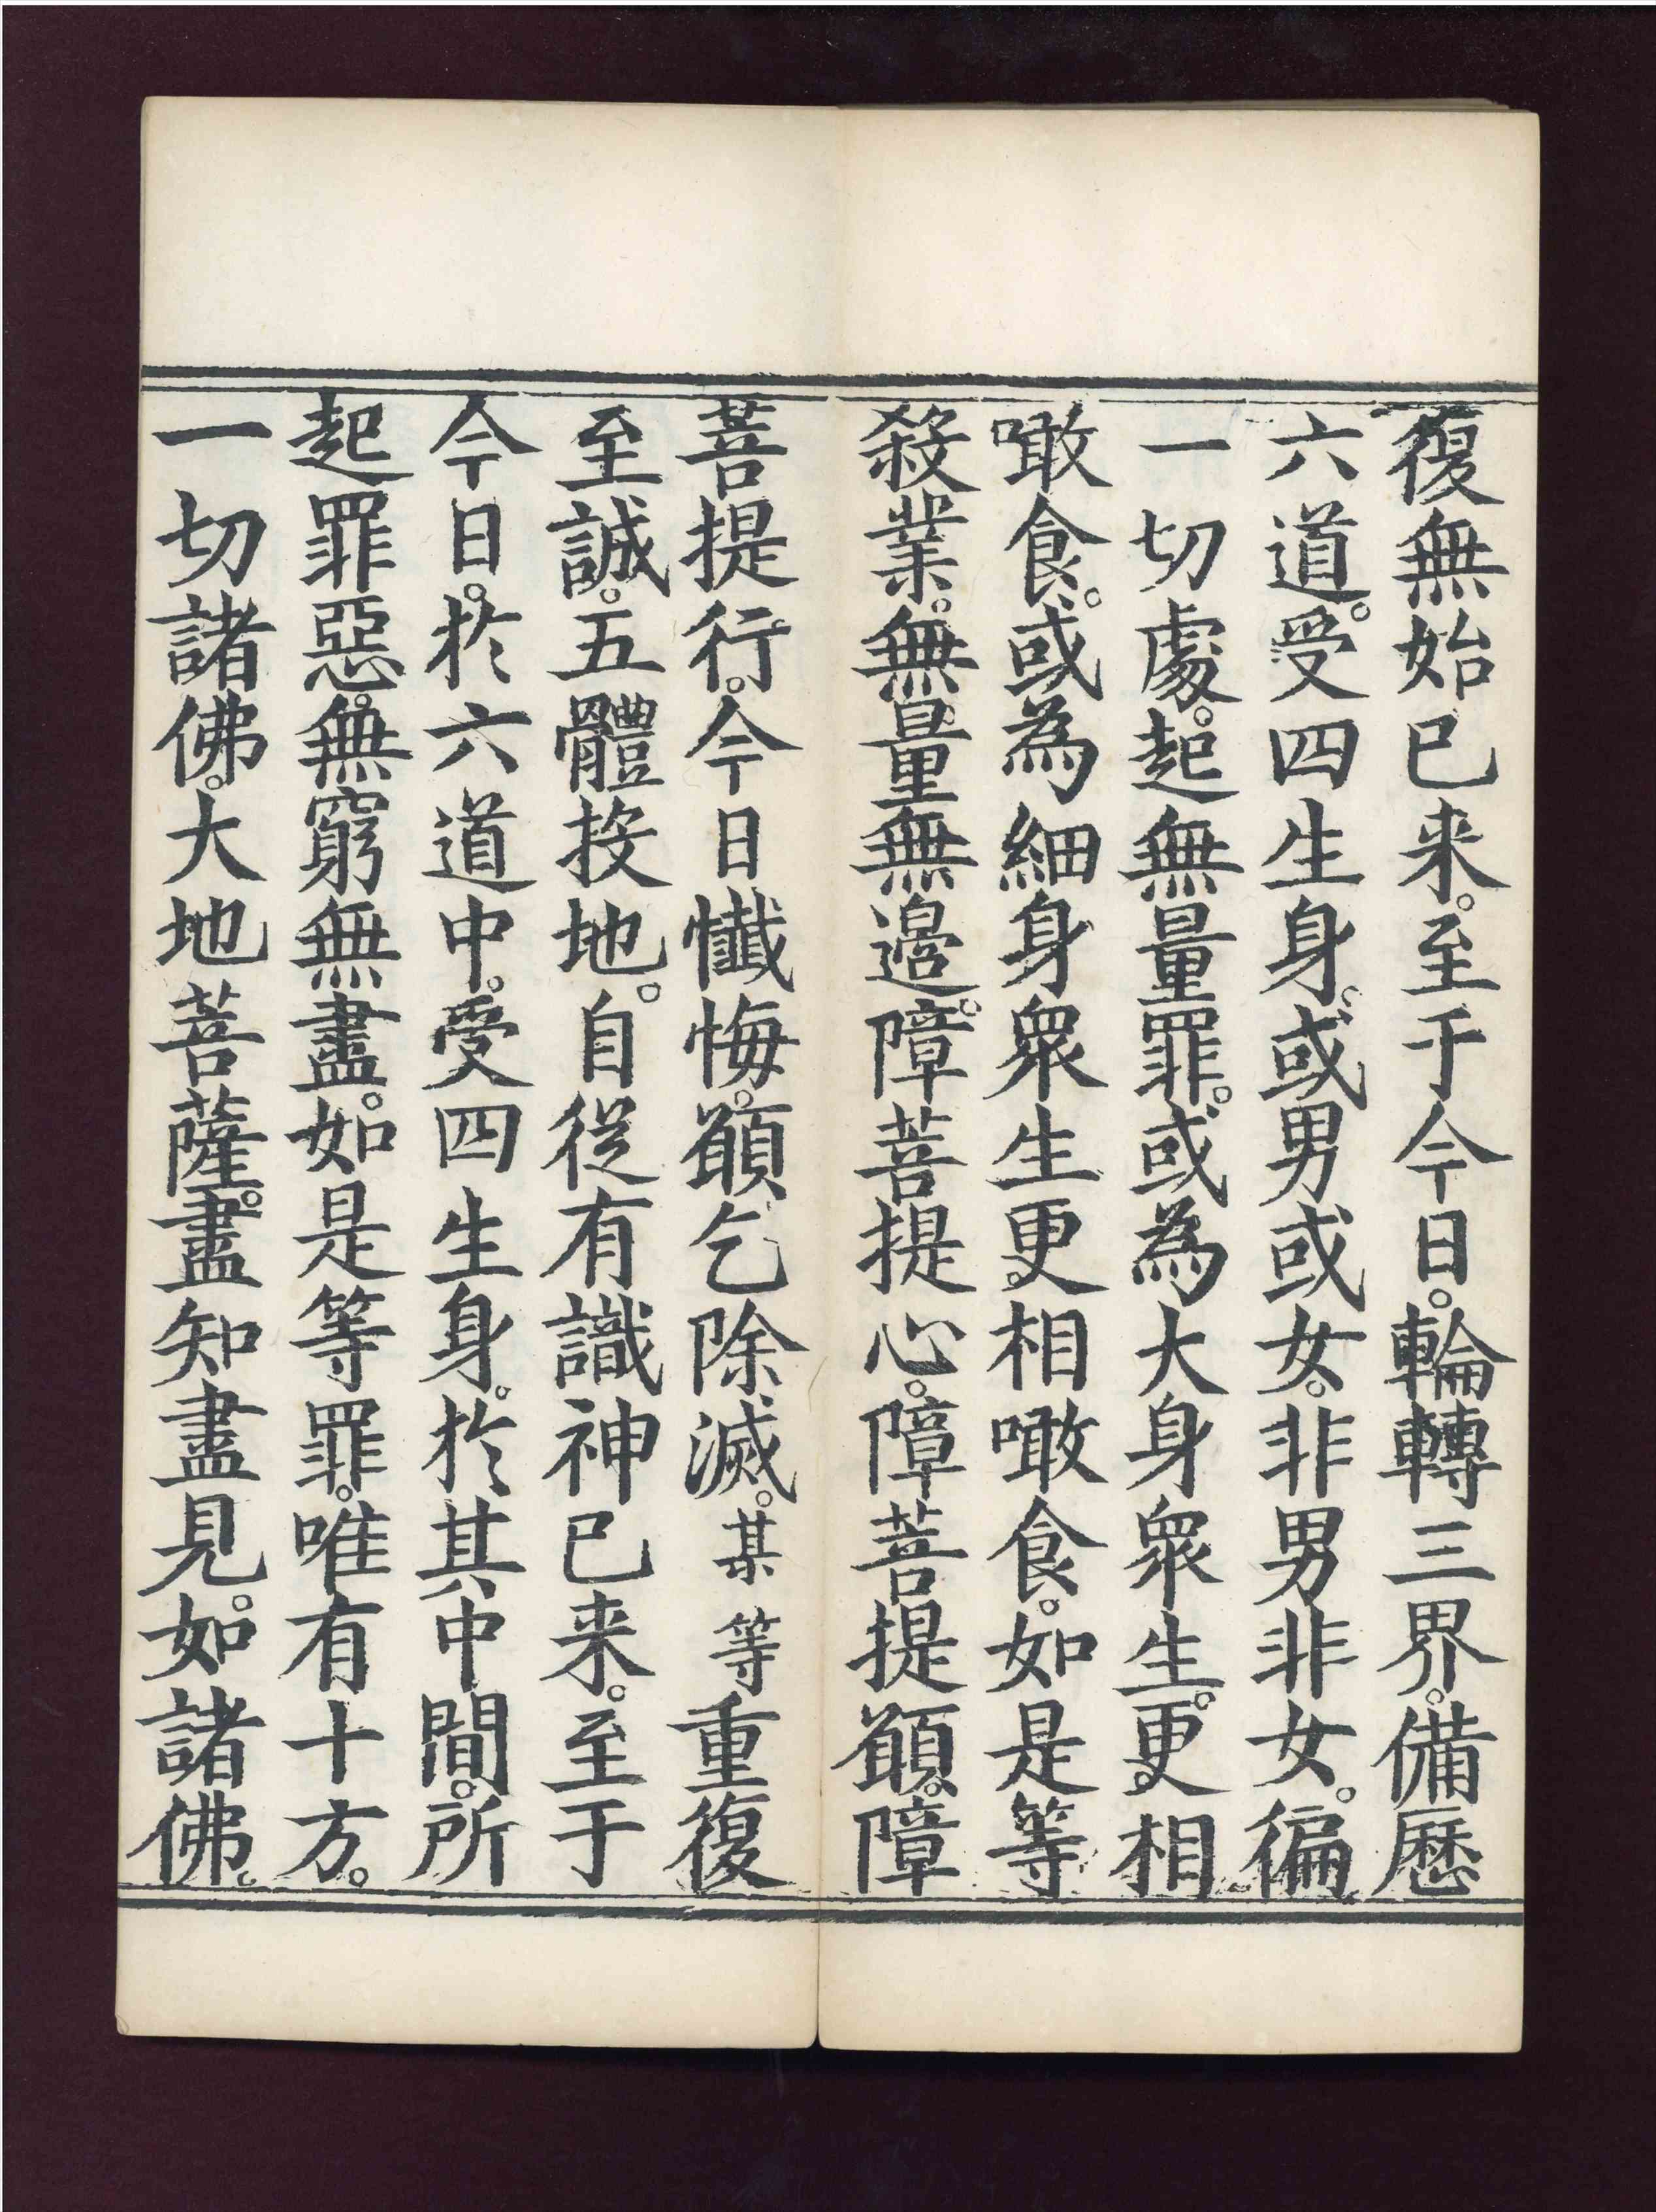 復無始已来。至于今日。輪轉三界。備歷
六道。受四生身。或男或女。非男非女。徧
一切處。起無量罪。或為大身衆生。更相
噉食。或為細身衆生。更相噉食。如是等
殺業。無量無邊。障菩提心。障菩提願。障
菩提行。今日懺悔。願乞除滅。某等重復
至誠。五體投地。自從有識神已来。至于
今日。於六道中。受四生身。於其中間。所
起罪惡。無窮無盡。如是等罪。唯有十方。
一切諸佛。大地菩薩。盡知盡見。如諸佛。